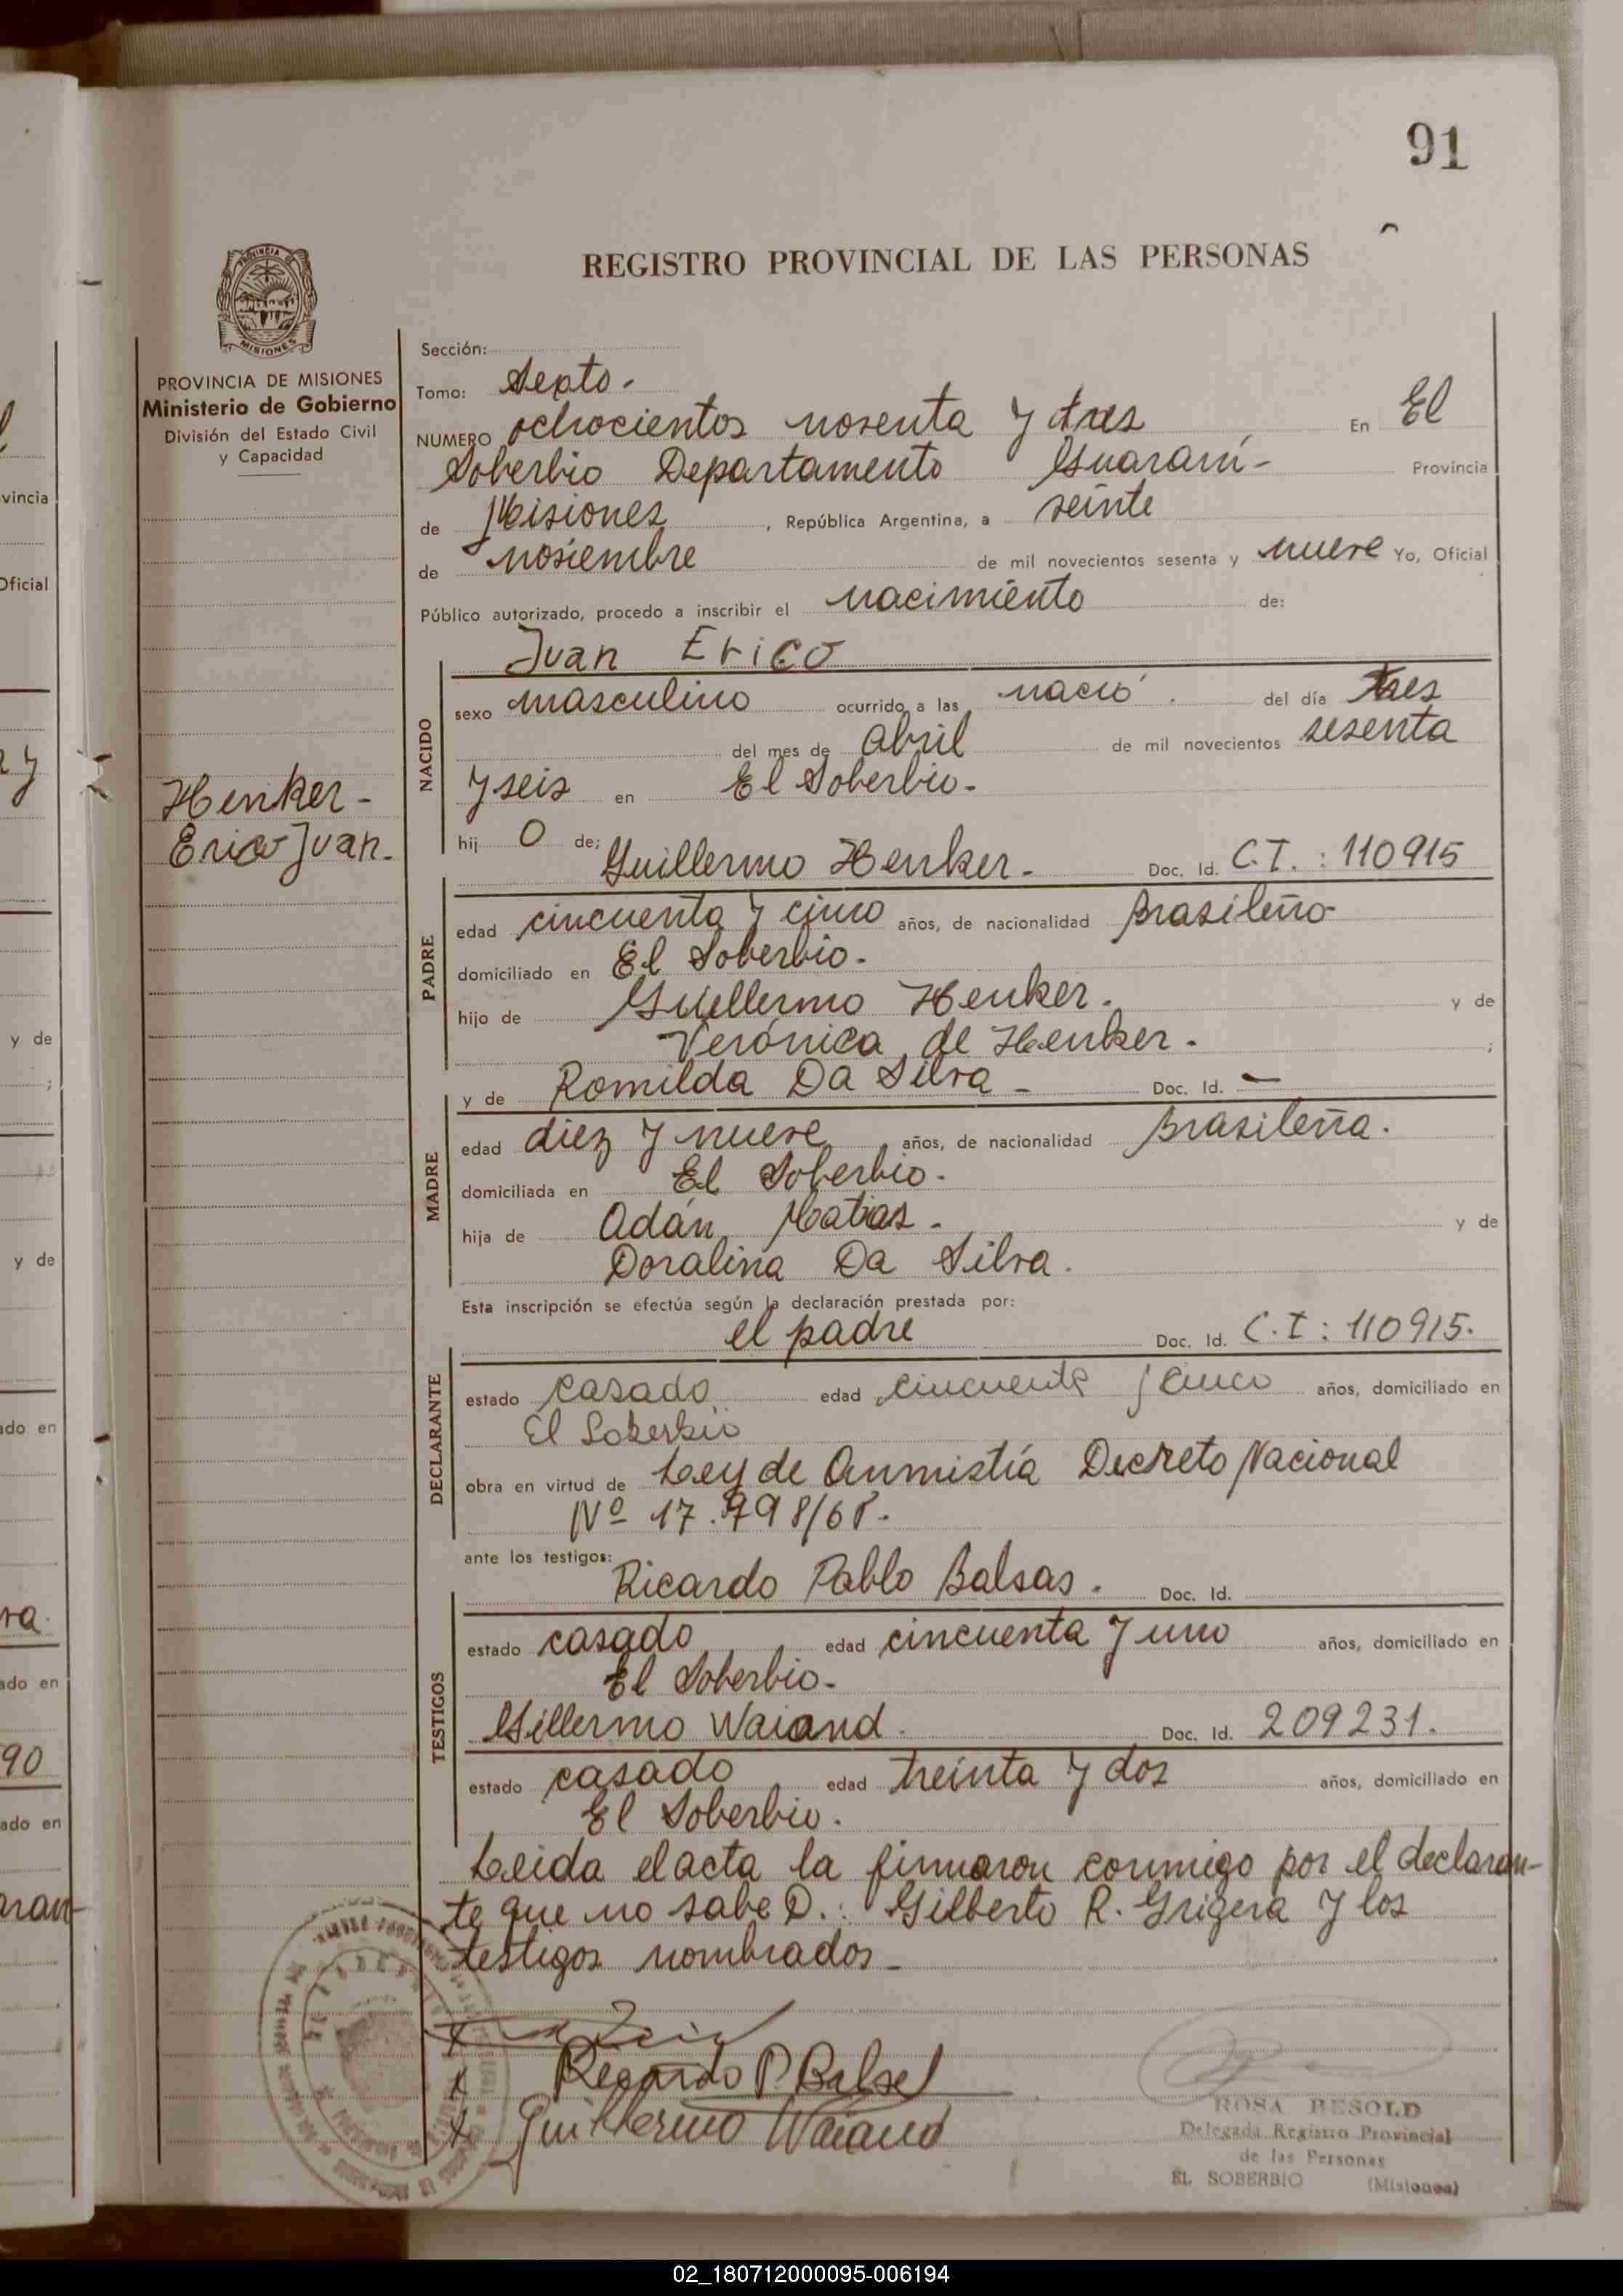 91
REGISTRO PROVINCIAL DE LAS PERSONAS
PROVINCIA DE MISIONES
Ministerio de Gobierno
División del Estado Civil
y Capacidad
Henker-
Erico Juan.
Sección:
Tomo: Sexto.
NUMERO ochocientos noventa y tres En El
Soberbio Departamento Guaraní- Provincia
de Misiones, República Argentina, a veinte
de noviembre de mil novecientos sesenta y nueve Yo, Oficial
Público autorizado, procedo a inscribir el nacimiento de:
Juan Erico
NACIDO
sexo masculino ocurrido a las nació. del día tres
del mes de abril de mil novecientos sesenta
y seis en El Soberbio.
hij o de; Guillermo Henker. Doc. Id. C.I.: 110915
PADRE
edad cincuenta y cinco años, de nacionalidad Brasileño
domiciliado en El Soberbio.
hijo de Guillermo Henker. y de
Verónica de Henker. ;
y de Romilda Da Silva - Doc. Id. -
MADRE
edad diez y nueve años, de nacionalidad Brasileña.
domiciliada en El Soberbio.
hija de Adán Matias. y de
Doralina Da Silva.
Esta inscripción se efectúa según la declaración prestada por:
el padre Doc. Id. C.I: 110915.
DECLARANTE
estado casado edad cincuenta y cinco años, domiciliado en
El Soberbio
obra en virtud de Ley de Anmistía Decreto Nacional
Nº 17.798/68.
ante los testigos: Ricardo Pablo Balsas. Doc. Id.
TESTIGOS
estado casado edad cincuenta y uno años, domiciliado en
El Soberbio.
Gillermo Waiand. Doc. Id. 209231.
estado casado edad treinta y dos años, domiciliado en
El Soberbio.
Leida el acta la firmaron conmigo por el declaran-
te que no sabe D.: Gilberto R. Grigera y los
testigos nombrados-
Ricardo P. Balsa
Guillermo Waiand
ROSA BESOLD
Delegada Registro Provincial
de las Personas
EL SOBERBIO (Misiones)
02_180712000095-006194